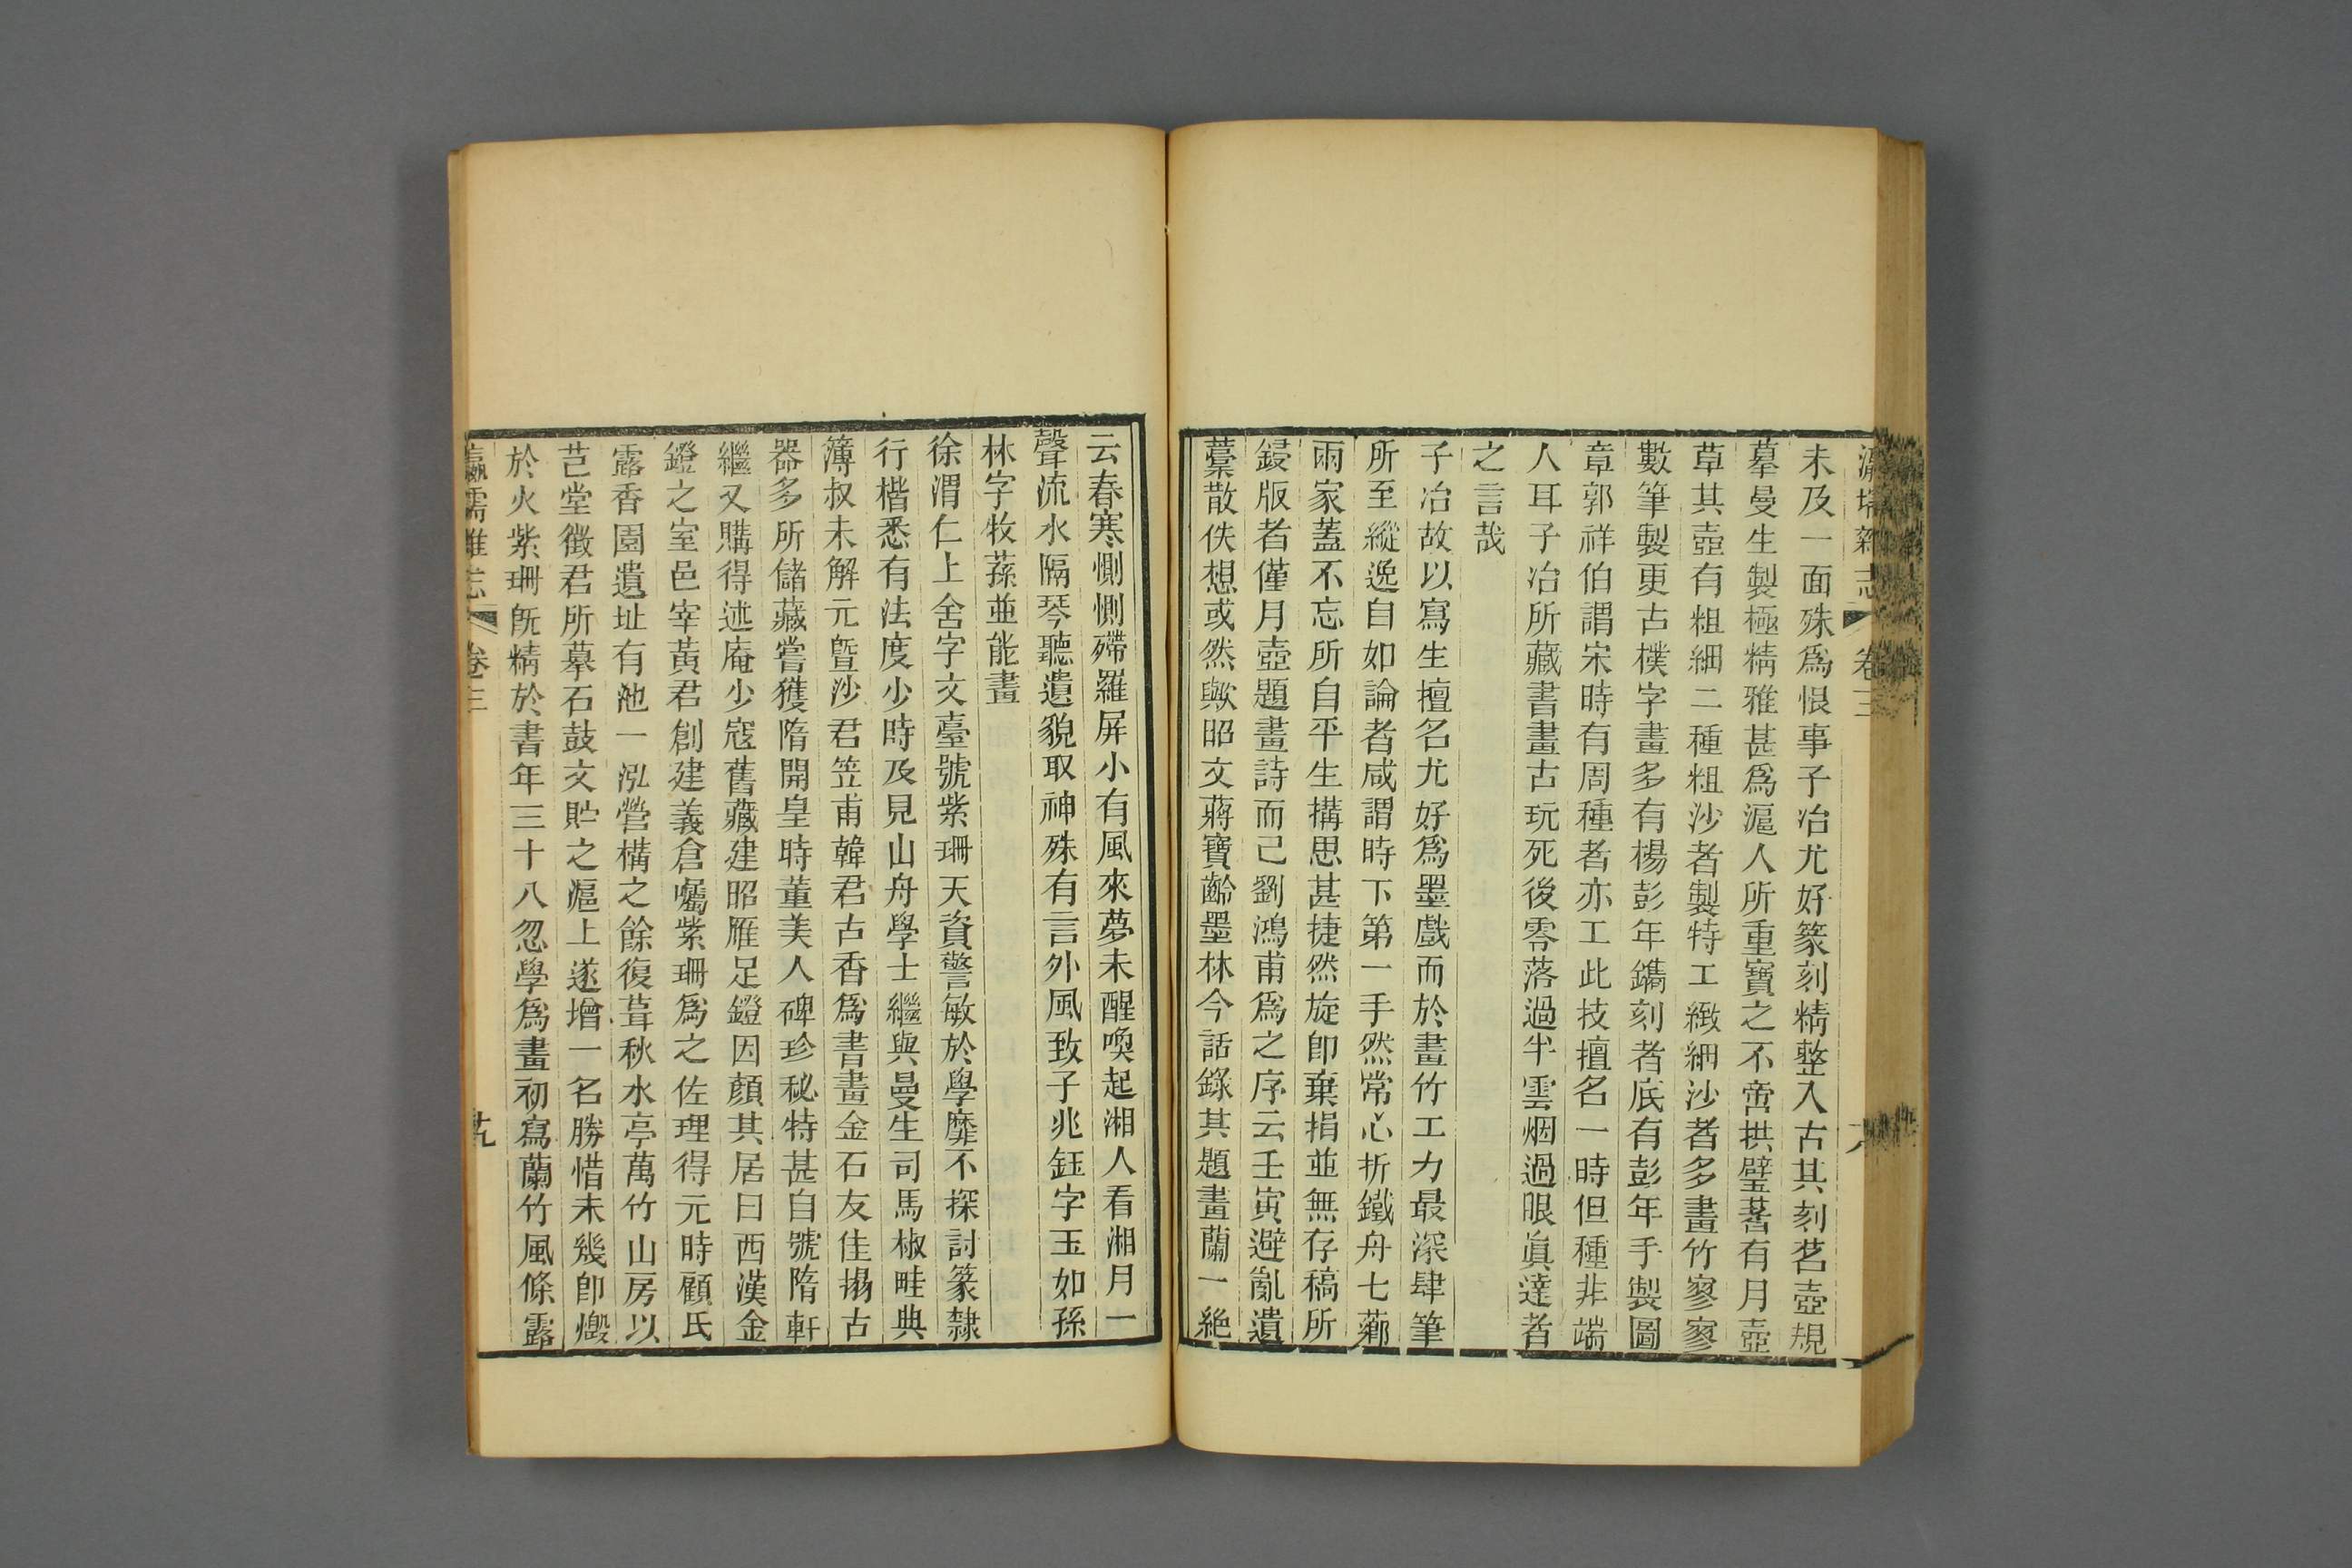 未及一面殊爲恨事子冶尤好篆刻精整入古其刻茗壺規
摹曼生製極精雅甚爲滬人所重寶之不啻拱璧著有月壺
草其壺有粗細二種粗沙者製特工緻細沙者多畫竹寥寥
數筆製更古樸字畫多有楊彭年鐫刻者底有彭年手製圖
章郭祥伯謂宋時有周種者亦工此技擅名一時但種非端
人耳子冶所藏書畫古玩死後零落過半雲烟過眼眞達者
之言哉
子冶故以寫生擅名尤好爲墨戲而於畫竹工力最深肆筆
所至縱逸自如論者咸謂時下第一手然常心折鐵舟七薌
兩家蓋不忘所自平生搆思甚捷然旋卽棄捐並無存稿所
鋟版者僅月壺題畫詩而已劉鴻甫爲之序云壬寅避亂遺
藁散佚想或然歟昭文蔣寶齡墨林今話錄其題畫蘭一絶
云春寒惻惻殢羅屏小有風來夢未醒喚起湘人看湘月一
聲流水隔琴聽遺貌取神殊有言外風致子兆鈺字玉如孫
林字牧蓀並能畫
徐渭仁上舍字文臺號紫珊天資警敏於學靡不探討篆隸
行楷悉有法度少時及見山舟學士繼與曼生司馬椒畦典
簿叔未解元曁沙君笠甫韓君古香爲書畫金石友佳搨古
器多所儲藏嘗獲隋開皇時董美人碑珍秘特甚自號隋軒
繼又購得述庵少寇舊藏建昭雁足鐙因顏其居曰西漢金
鐙之室邑宰黃君創建義倉囑紫珊爲之佐理得元時顧氏
露香園遺址有池一泓營構之餘復葺秋水亭萬竹山房以
芑堂徵君所摹石鼓文貯之滬上遂增一名勝惜未幾卽燬
於火紫珊旣精於書年三十八忽學爲畫初寫蘭竹風條露
卷三